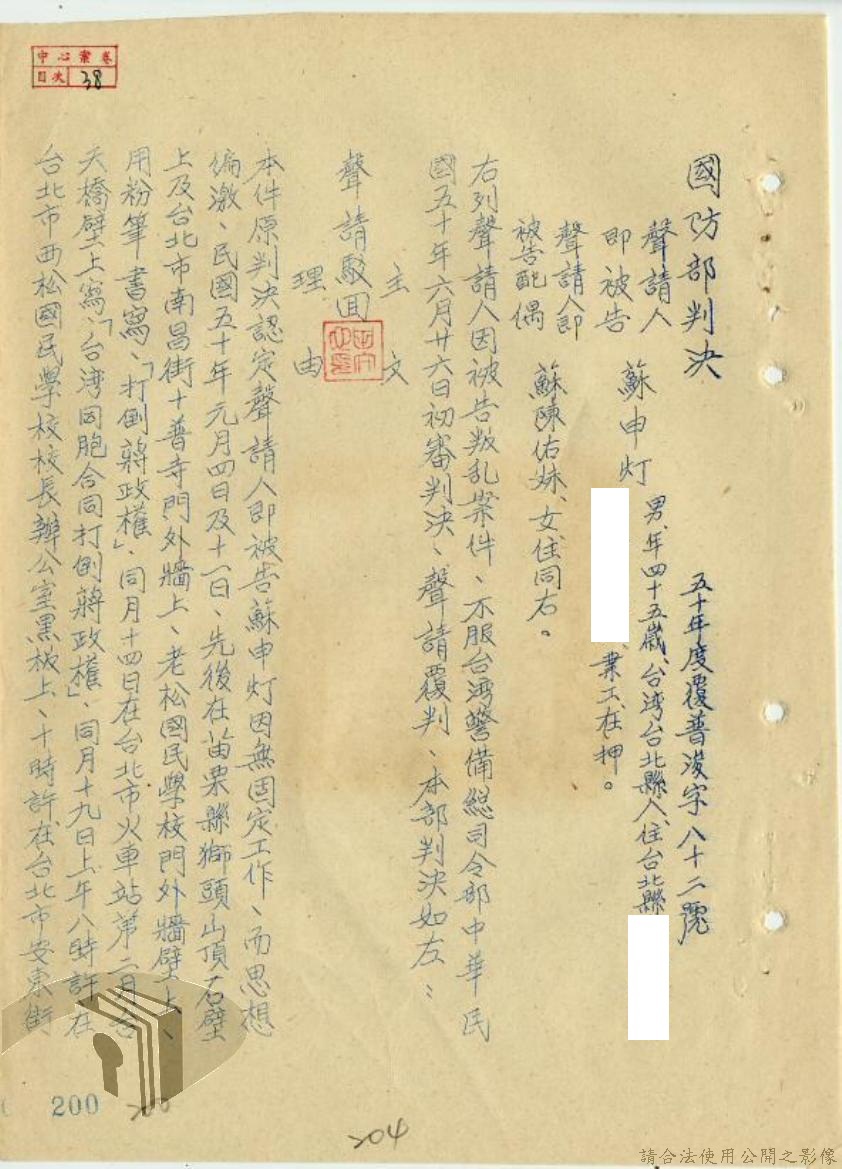 中心案卷
目次 38
國防部判決
五十年度覆普淩字八十二號
聲請人
即被告
蘇申灯
男、年四十五歲、台湾台北縣人、住台北縣
、業工、在押。
聲請人即
被告配偶
蘇陳佑妹、女、住同右。
右列聲請人因被告叛乱案件、不服台湾警備総司令部中華民
國五十年六月廿六日初審判決、聲請覆判、本部判決如左：
主文
聲請駁回
理由
本件原判決認定聲請人即被告蘇申灯因無固定工作、而思想
偏激、民國五十年元月四日及十一日、先後在苗栗縣獅頭山頂石壁
上及台北市南昌街十普寺門外牆上、老松國民學校門外牆壁上、
用粉筆書寫、「打倒蔣政權」、同月十四日在台北市火車站第二月台
天橋壁上寫、「台湾同胞合同打倒蔣政權」、同月十九日上午八時許在
台北市西松國民學校校長辦公室黑板上、十時許在台北市安東街
200
204
請合法使用公開之影像